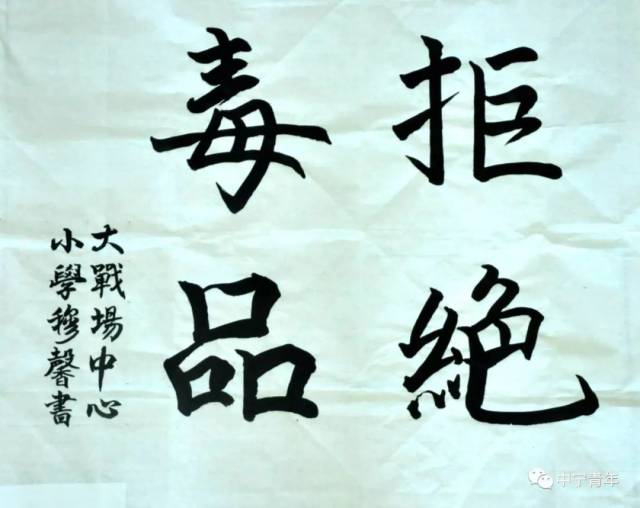 拒絶
毒品
大戰場中心
小學穆馨書
中宁青年